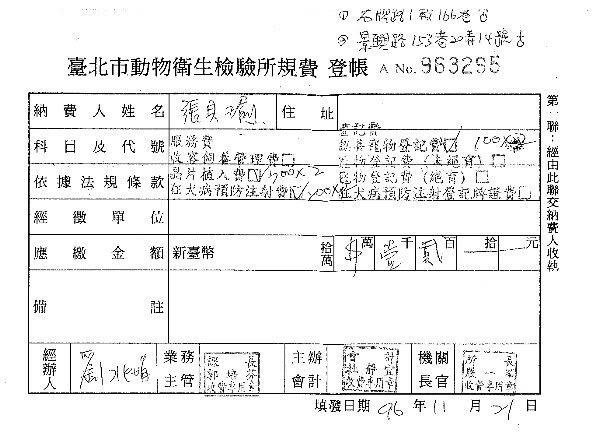 ① 石牌路1段166巷
② 景興路153巷20弄14號
臺北市動物衛生檢驗所規費 登帳 A No. 963295
納費人姓名 張貝 住址
科目及代號
服務費
收容飼養管理費□
晶片植入費☑ 300×2
狂犬病預防注射費☑ 200×
登記費
寵物登記費☑ 100×2
寵物登記費(未絕育)□
寵物登記費(絕育)□
狂犬病預防注射登記牌證費□
依據法規條款
經徵單位
應繳金額 新臺幣 拾萬 $ 萬 壹 千 貳 百 拾 元
備註
經辦人 業務主管 主辦會計 機關長官
填發日期 96 年 11 月 21 日
第一聯:經由此聯交納費人收執